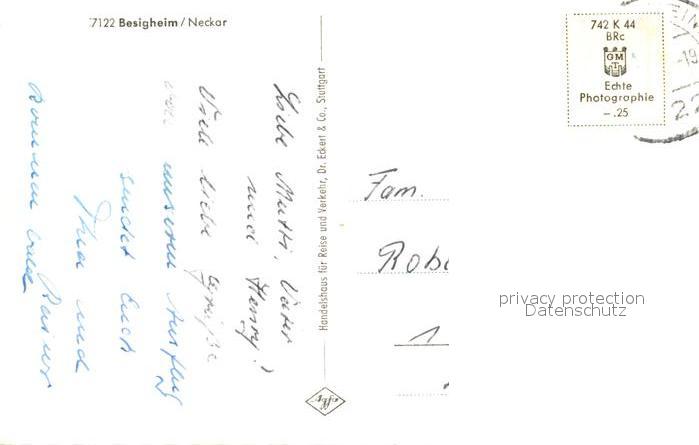 7122 Besigheim / Neckar
Liebe Mutti, Vater
und Henry!
Viele liebe Grüße
von unserem Ausflug
sendet Euch
und
Kommen bald
Handelshaus für Reise und Verkehr, Dr. Eckert & Co., Stuttgart
effbe
742 K 44
BRc
GM
T
Echte
Photographie
– .25
22
Fam.
Rob
1
privacy protection
Datenschutz